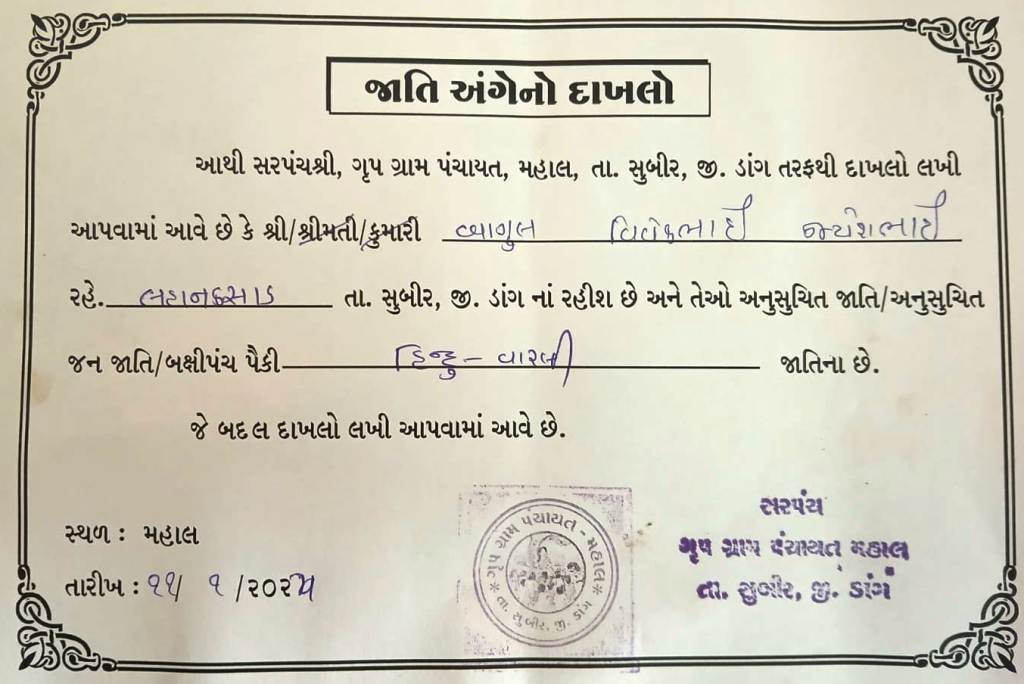 જાતિ અંગેનો દાખલો
આથી સરપંચશ્રી, ગૃપ ગ્રામ પંચાયત, મહાલ, તા. સુબીર, જી. ડાંગ તરફથી દાખલો લખી
આપવામાં આવે છે કે શ્રી/શ્રીમતી/કુમારી બાગુલ વિવેકભાઈ જયેશભાઈ
રહે. લહાનકસાડ તા. સુબીર, જી. ડાંગ નાં રહીશ છે અને તેઓ અનુસુચિત જાતિ/અનુસુચિત
જન જાતિ/બક્ષીપંચ પૈકી હિન્દુ - વારલી જાતિના છે.
જે બદલ દાખલો લખી આપવામાં આવે છે.
સ્થળ : મહાલ
તારીખ : ૧૧/ ૧ /૨૦૨૫
ગૃપ ગ્રામ પંચાયત - મહાલ
તા. સુબીર, જી. ડાંગ
સરપંચ
ગૃપ ગ્રામ પંચાયત મહાલ
તા. સુબીર, જી. ડાંગ